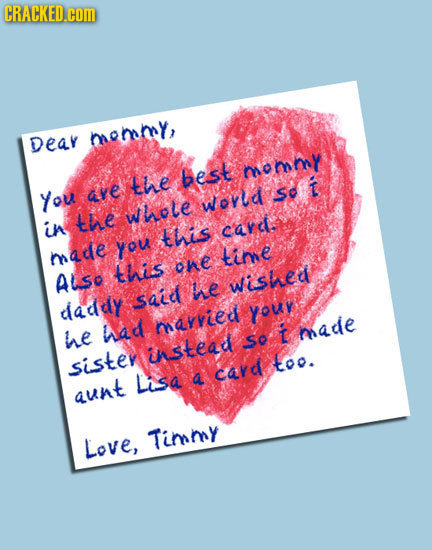 CRACKED.com
Dear mommy,
You are the best mommy
in the whole world so i
made you this card.
Also this one time
daddy said he wished
he had married your
sister instead so i made
aunt Lisa a card too.
Love, Timmy